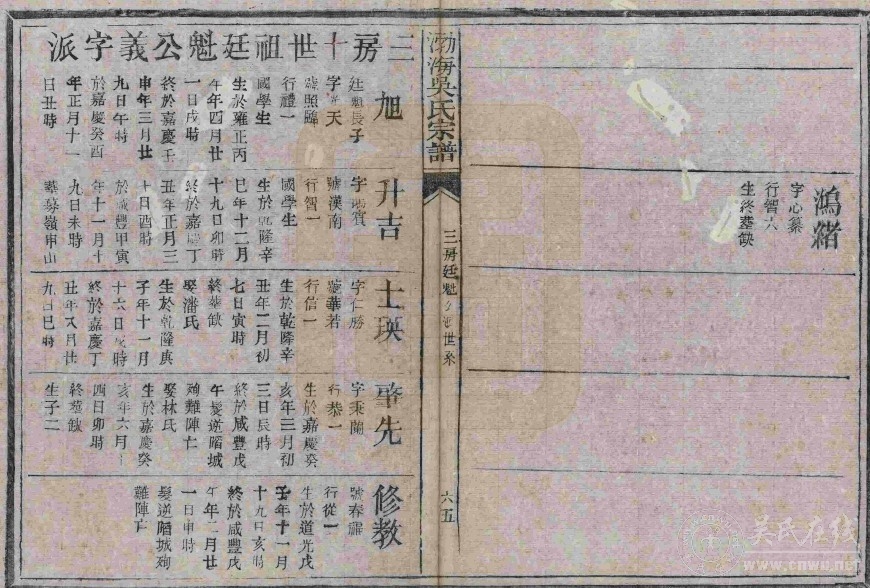 鴻緒
字心纂
行智六
生終塟缺
渤海吳氏宗譜
三房廷魁公派世系
六五
三房十世祖廷魁公義字派
旭
廷魁長子
字天
號照
行禮一
國學生
生於雍正丙
午年四月廿
一日戌時
終於嘉慶壬
申年三月廿
九日午時
於嘉慶癸酉
年正月十一
日丑時
升吉
字賓
號漢南
行智一
國學生
生於乾隆辛
巳年十二月
十九日卯時
終於嘉慶丁
丑年正月三
十日酉時
於咸豐甲寅
年十一月十
九日未時
塟募嶺申山
士瑛
字仁勝
號華若
行信一
生於乾隆辛
丑年二月初
七日寅時
終塟缺
娶潘氏
生於乾隆庚
子年十一月
十六日戌時
終於嘉慶丁
丑年又月廿
九日巳時
肇先
字秉蘭
行恭一
生於嘉慶癸
亥年三月初
三日辰時
終於咸豐戊
午髮逆踏城
殉難陣亡
娶林氏
生於嘉慶癸
亥年六月十
四日卯時
終塟缺
生子二
修教
號春
行從一
生於道光戊
子年十一月
十九日亥時
終於咸豐戊
午年二月廿
一日申時
髮逆踏城殉
難陣亡
吴氏在线
www.cnwu.net